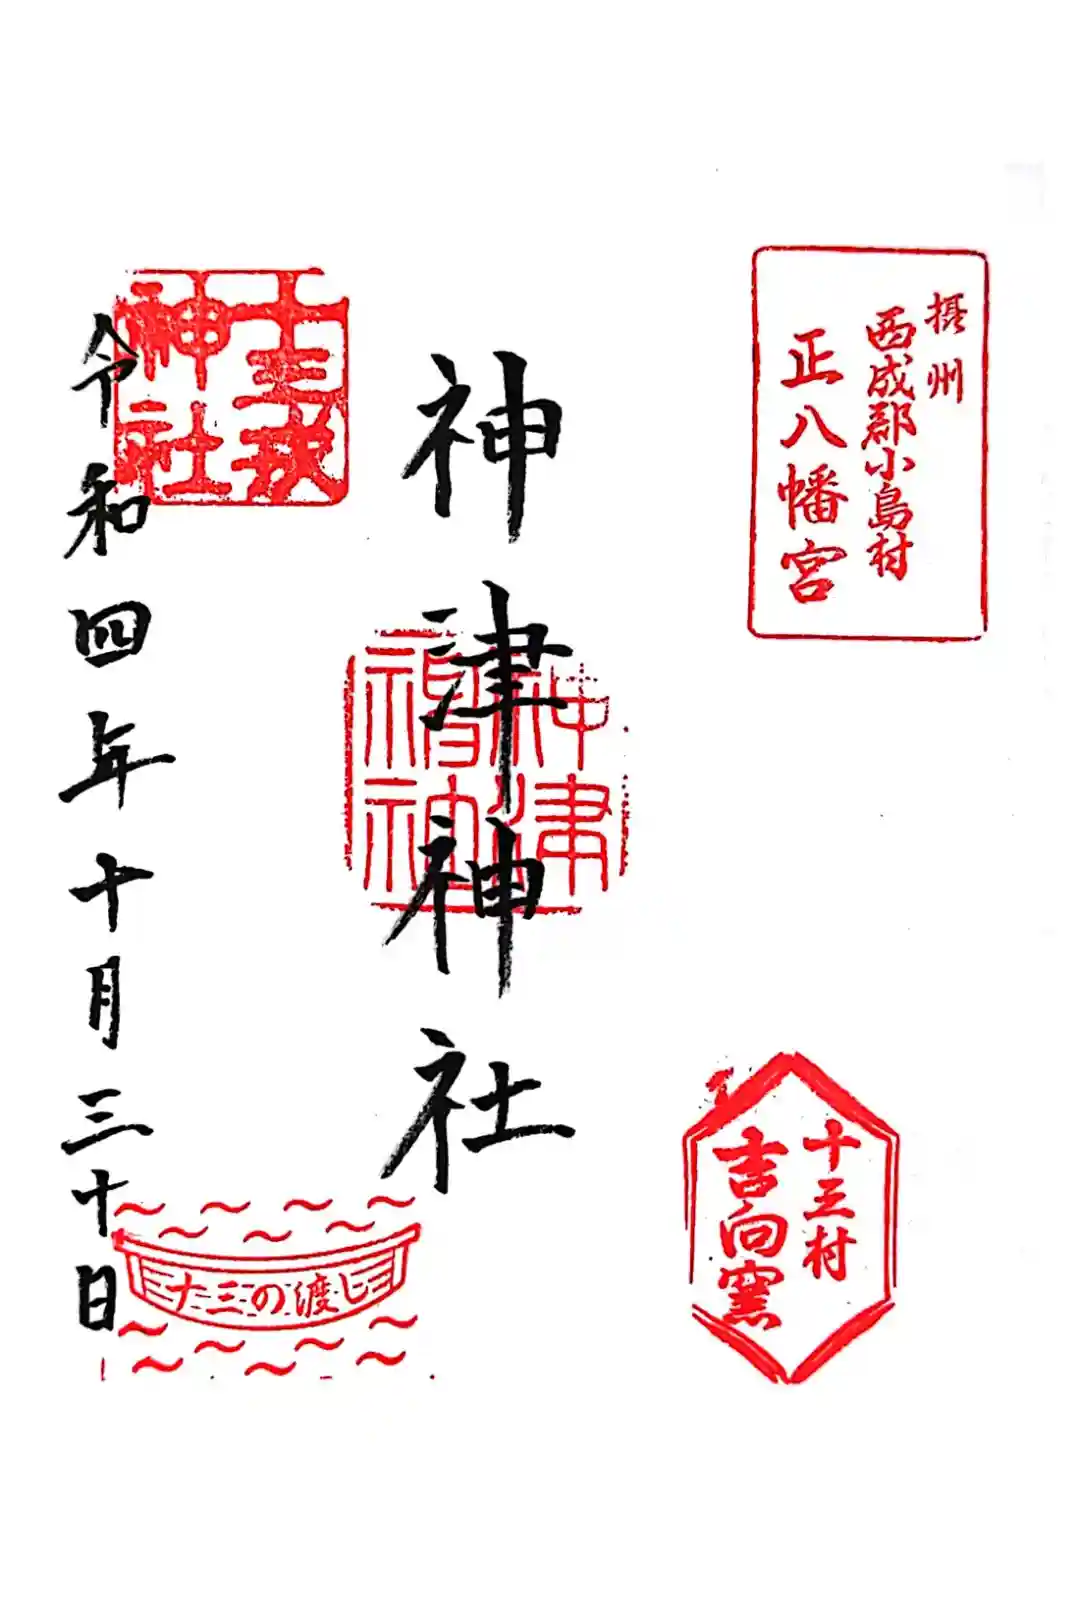 摂州
西成郡小島村
正八幡宮
十三村
吉向窯
神津神社
神津
社
十三戎
神社
令和四年十月三十日
十三の渡し